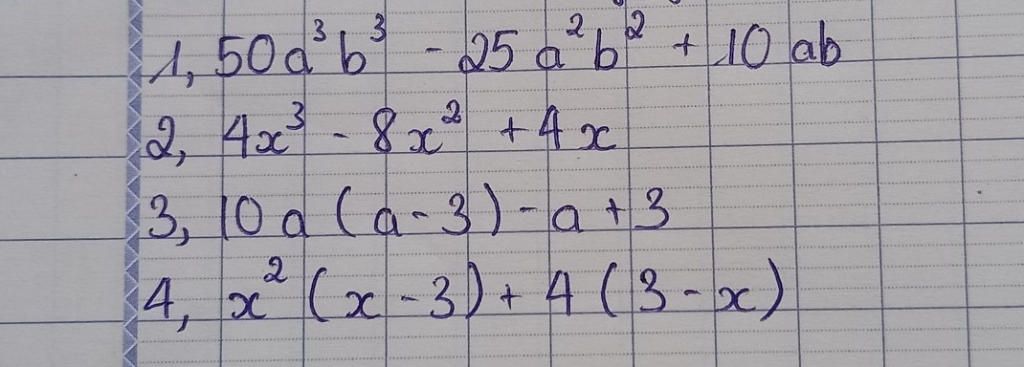 1, 50a³b³ - 25a²b² + 10ab
2, 4x³ - 8x² + 4x
3, 10a(a-3)-a+3
4, x²(x-3)+4(3-x)